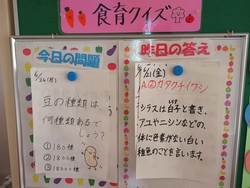 食育クイズ
今日の問題
6/24(月)
豆の種類は、
何種類あるで
しょう?
①180種
②1800種
③18000種
昨日の答え
6/21(金)
A.②カタクチイワシ
シラスは白子と書き、
アユやニシンなどの、
体に色素がない白い
稚魚のことを言います。